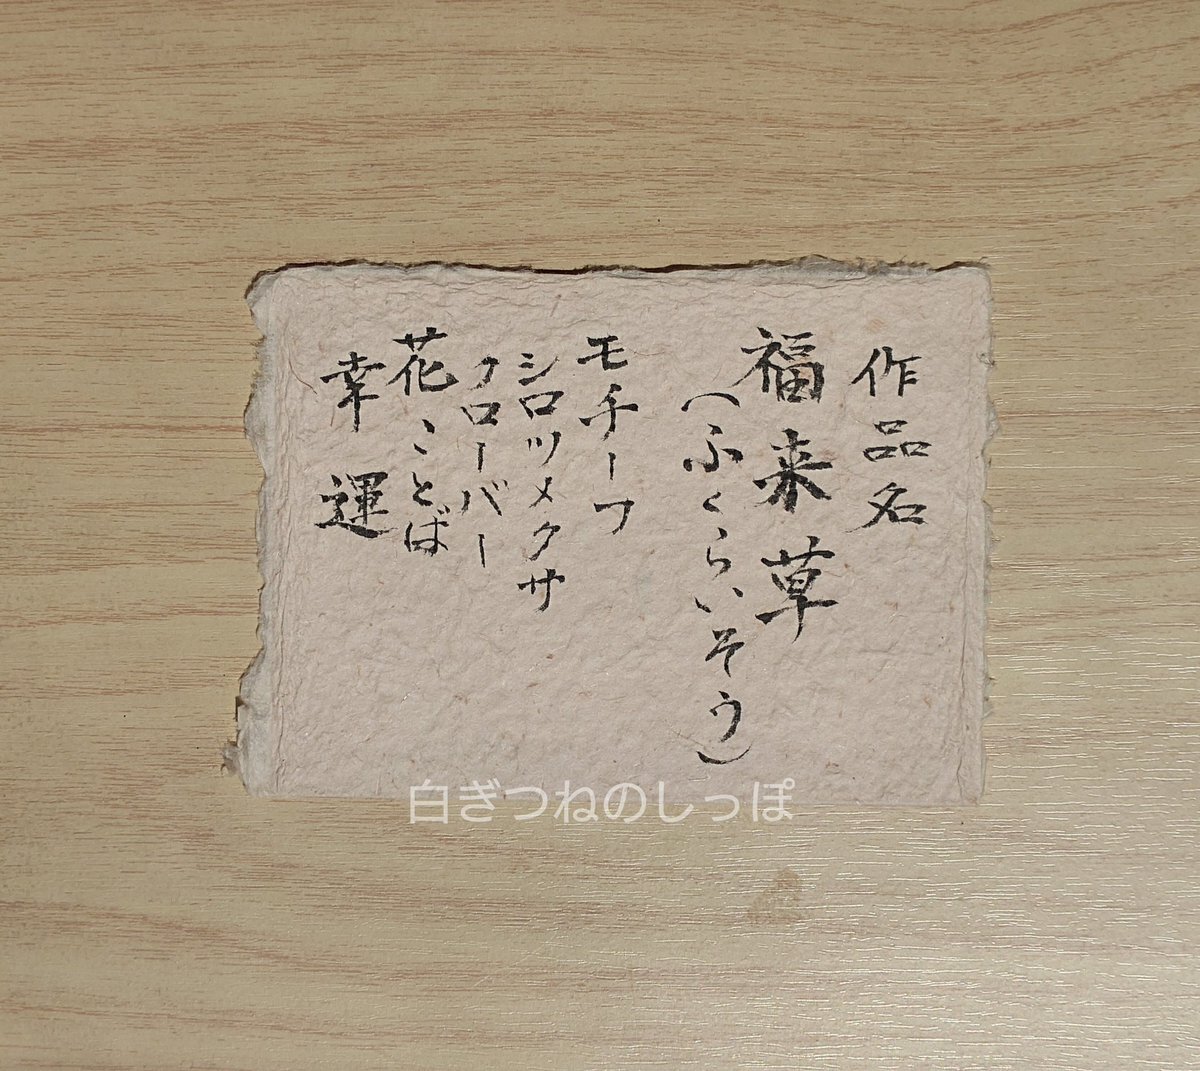 作品名
福来草
(ふくらいそう)
モチーフ
シロツメクサ
クローバー
花ことば
幸運
白ぎつねのしっぽ